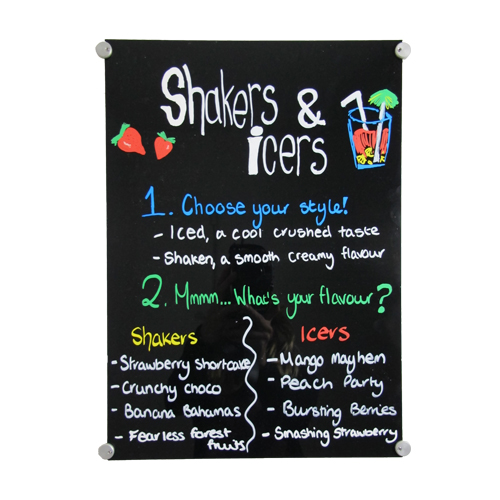 Shakers &
icers
1. Choose your style!
- Iced, a cool crushed taste
- Shaken, a smooth creamy flavour
2. Mmmm... What's your flavour?
Shakers
- Strawberry Shortcake
- Crunchy choco
- Banana Bahamas
- Fearless forest
fruits
Icers
- Mango Mayhem
- Peach Party
- Bursting Berries
- Smashing Strawberry